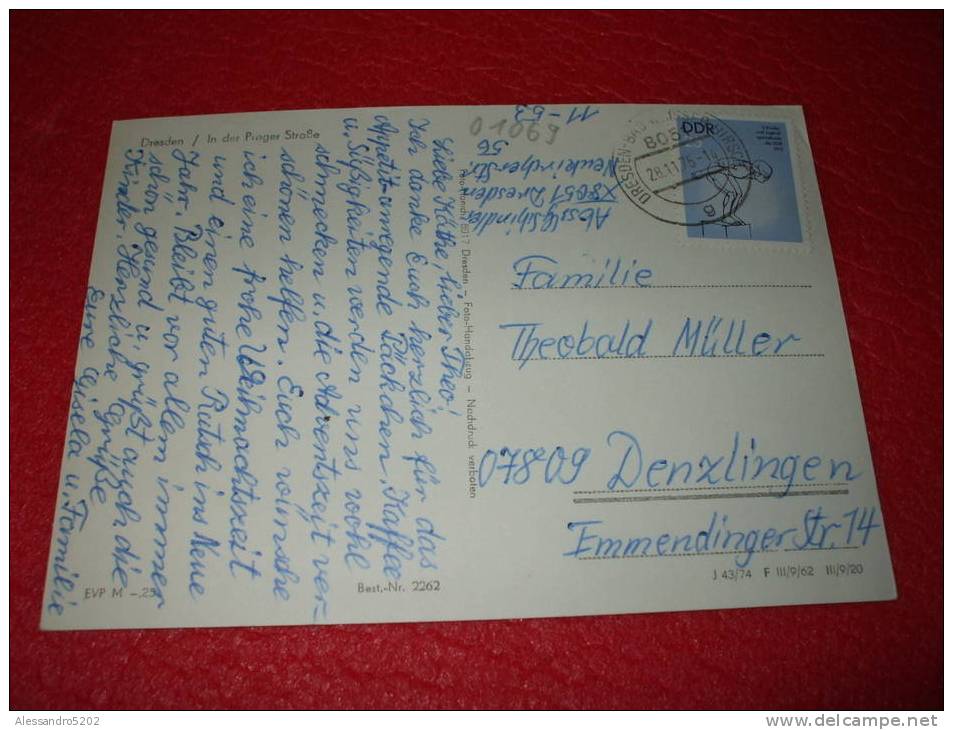 Dresden / In der Prager Straße
Liebe Käthe, lieber Theo!
Ich danke Euch herzlich für das
Appetitanregende Päckchen. Kaffee
u. Süßigkeiten werden uns wohl
schmecken u. die Adventszeit ver-
schönen helfen. Euch wünsche
ich eine frohe Weihnachtszeit
und einen guten Rutsch ins Neue
Jahr. Bleibt vor allem immer
schön gesund u. grüßt auch die
Kinder. Herzliche Grüße
Eure Gisela u. Familie
EVP M -,25
Best.-Nr. 2262
8017 Dresden – Foto-Handabzug – Nachdruck verboten
Schindler
X8051 Dresden
Neukircher Str.
56
11-53
01069
DRESDEN-BAD
805
28.11.75-1
DDR
Familie
Theobald Müller
07809 Denzlingen
Emmendinger Str. 14
J 43/74 F III/9/62 III/9/20
Alessandro5202
www.delcampe.net